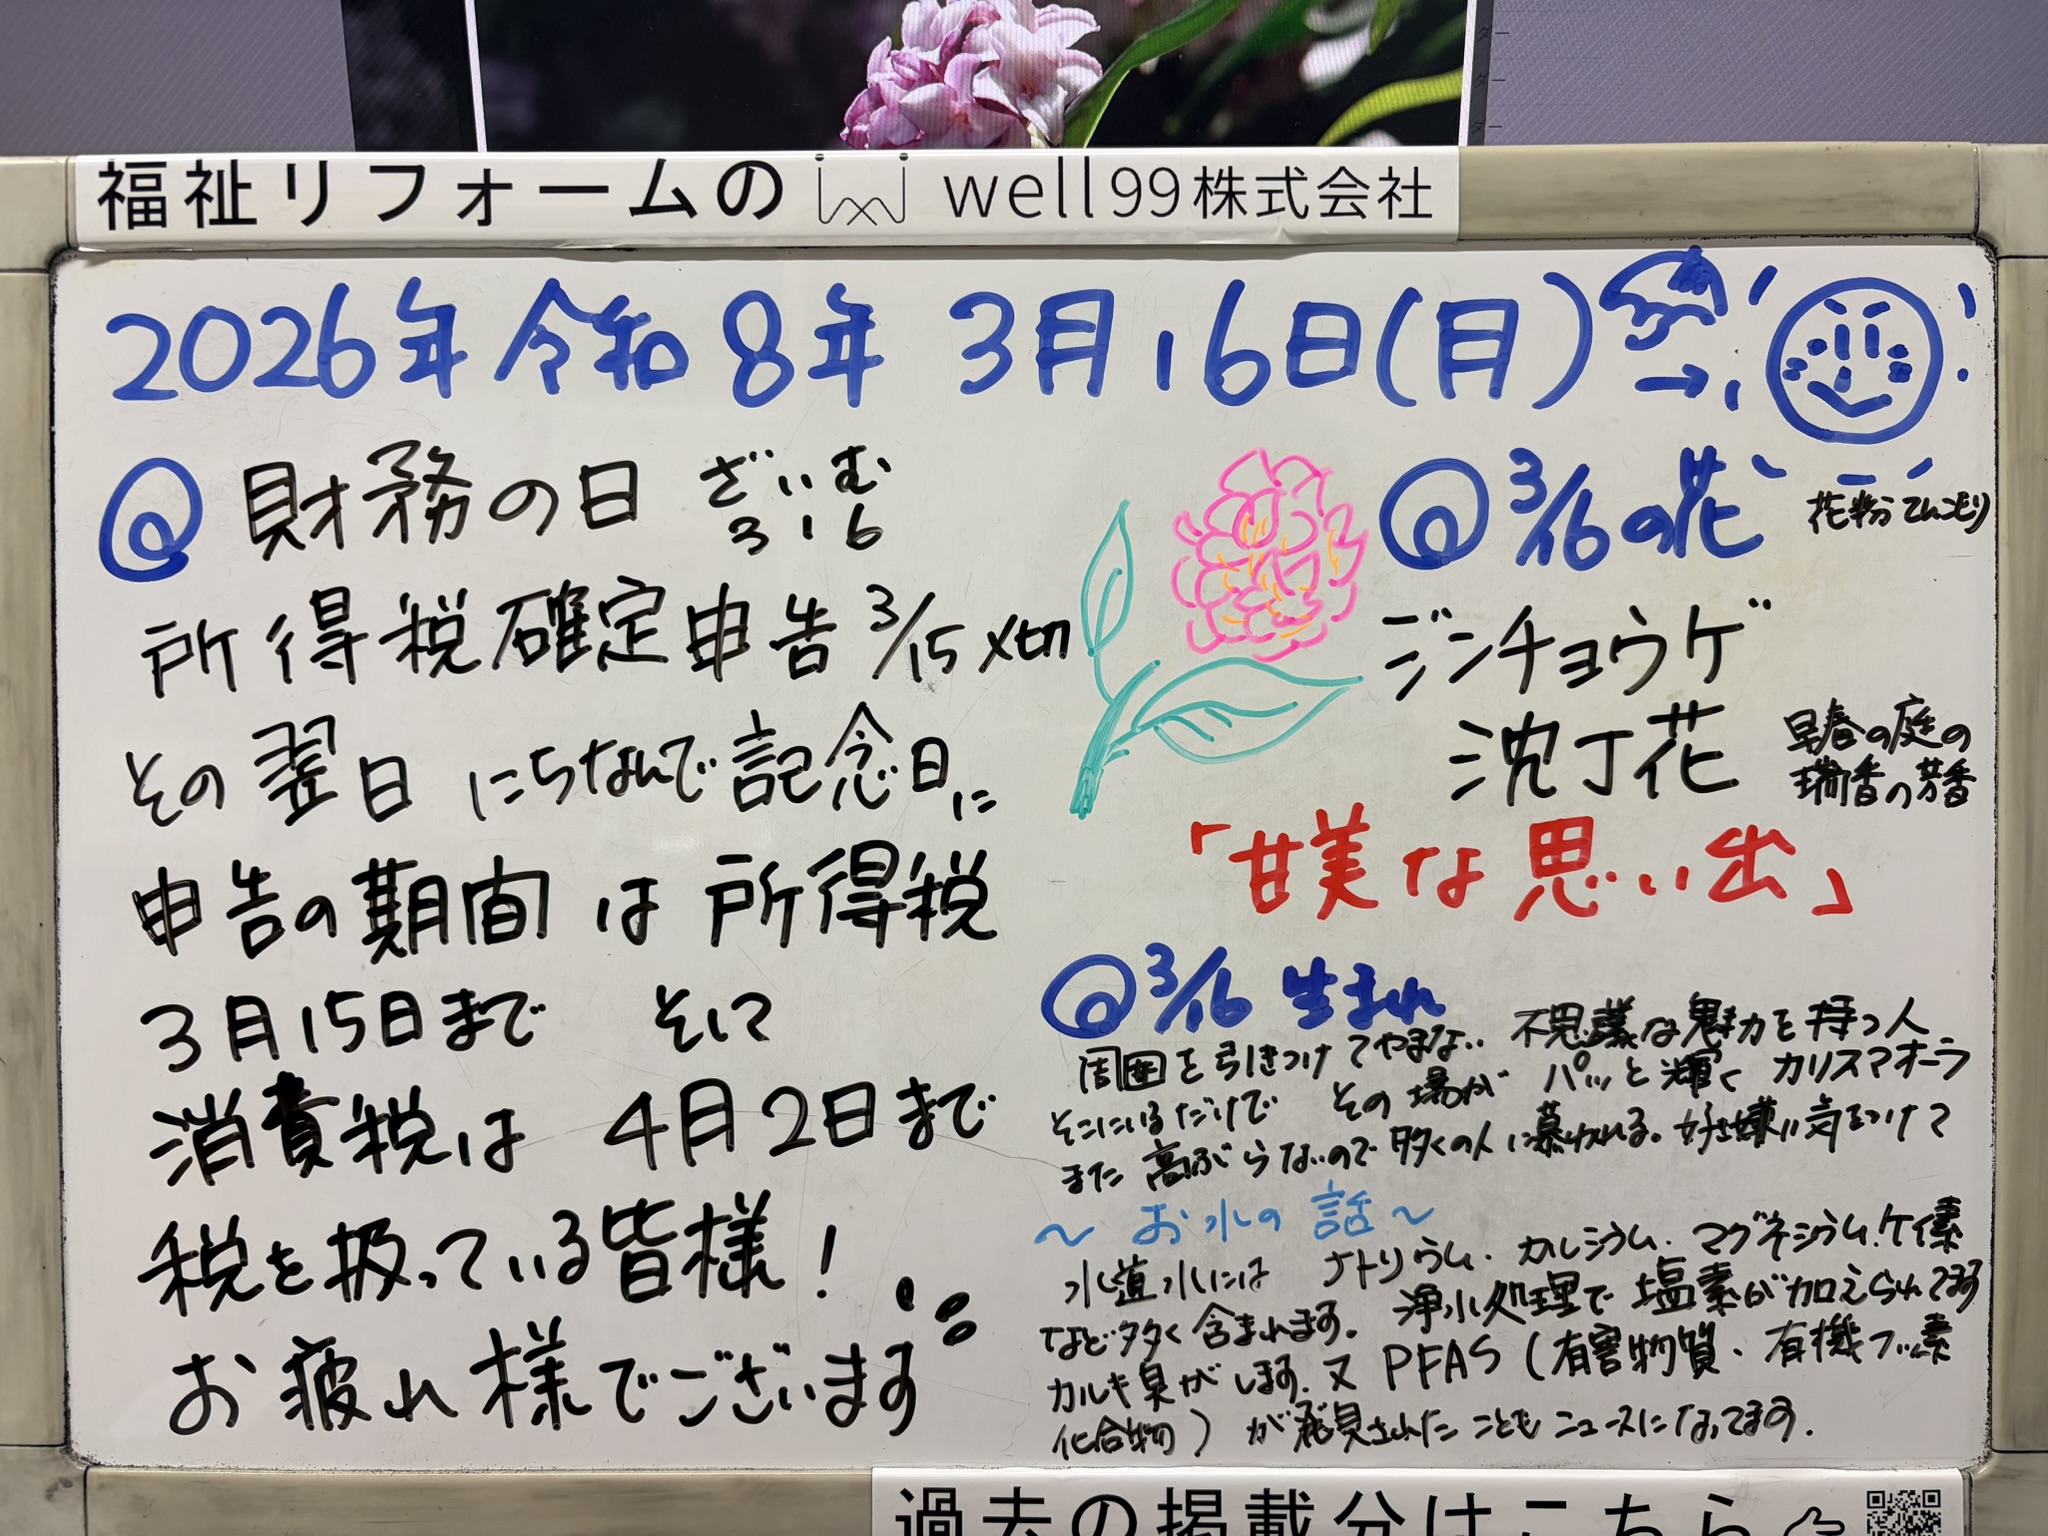 福祉リフォームの well99株式会社
2026年 令和8年 3月16日(月)
財務の日 ざいむ
3 1 6
所得税確定申告 3/15 〆切
その翌日にちなんで記念日に
申告の期間は所得税
3月15日まで そして
消費税は 4月2日まで
税を扱っている皆様!
お疲れ様でございます
3/16の花
花粉てんこもり
ジンチョウゲ
沈丁花
早春の庭の
瑞香の芳香
「甘美な思い出」
3/16 生まれ
周囲を引きつけてやまない 不思議な魅力を持つ人
そこにいるだけで その場が パッと輝く カリスマオーラ
また 高ぶらないので多くの人に慕われる。好き嫌いに気をつけて
～お水の話～
水道水には ナトリウム.カルシウム.マグネシウム.ケイ素
など多く含まれます。浄水処理で 塩素が加えられてます
カルキ臭がします.又 PFAS (有害物質、有機フッ素
化合物) が発見されたこともニュースになってます.
過去の掲載分はこちら